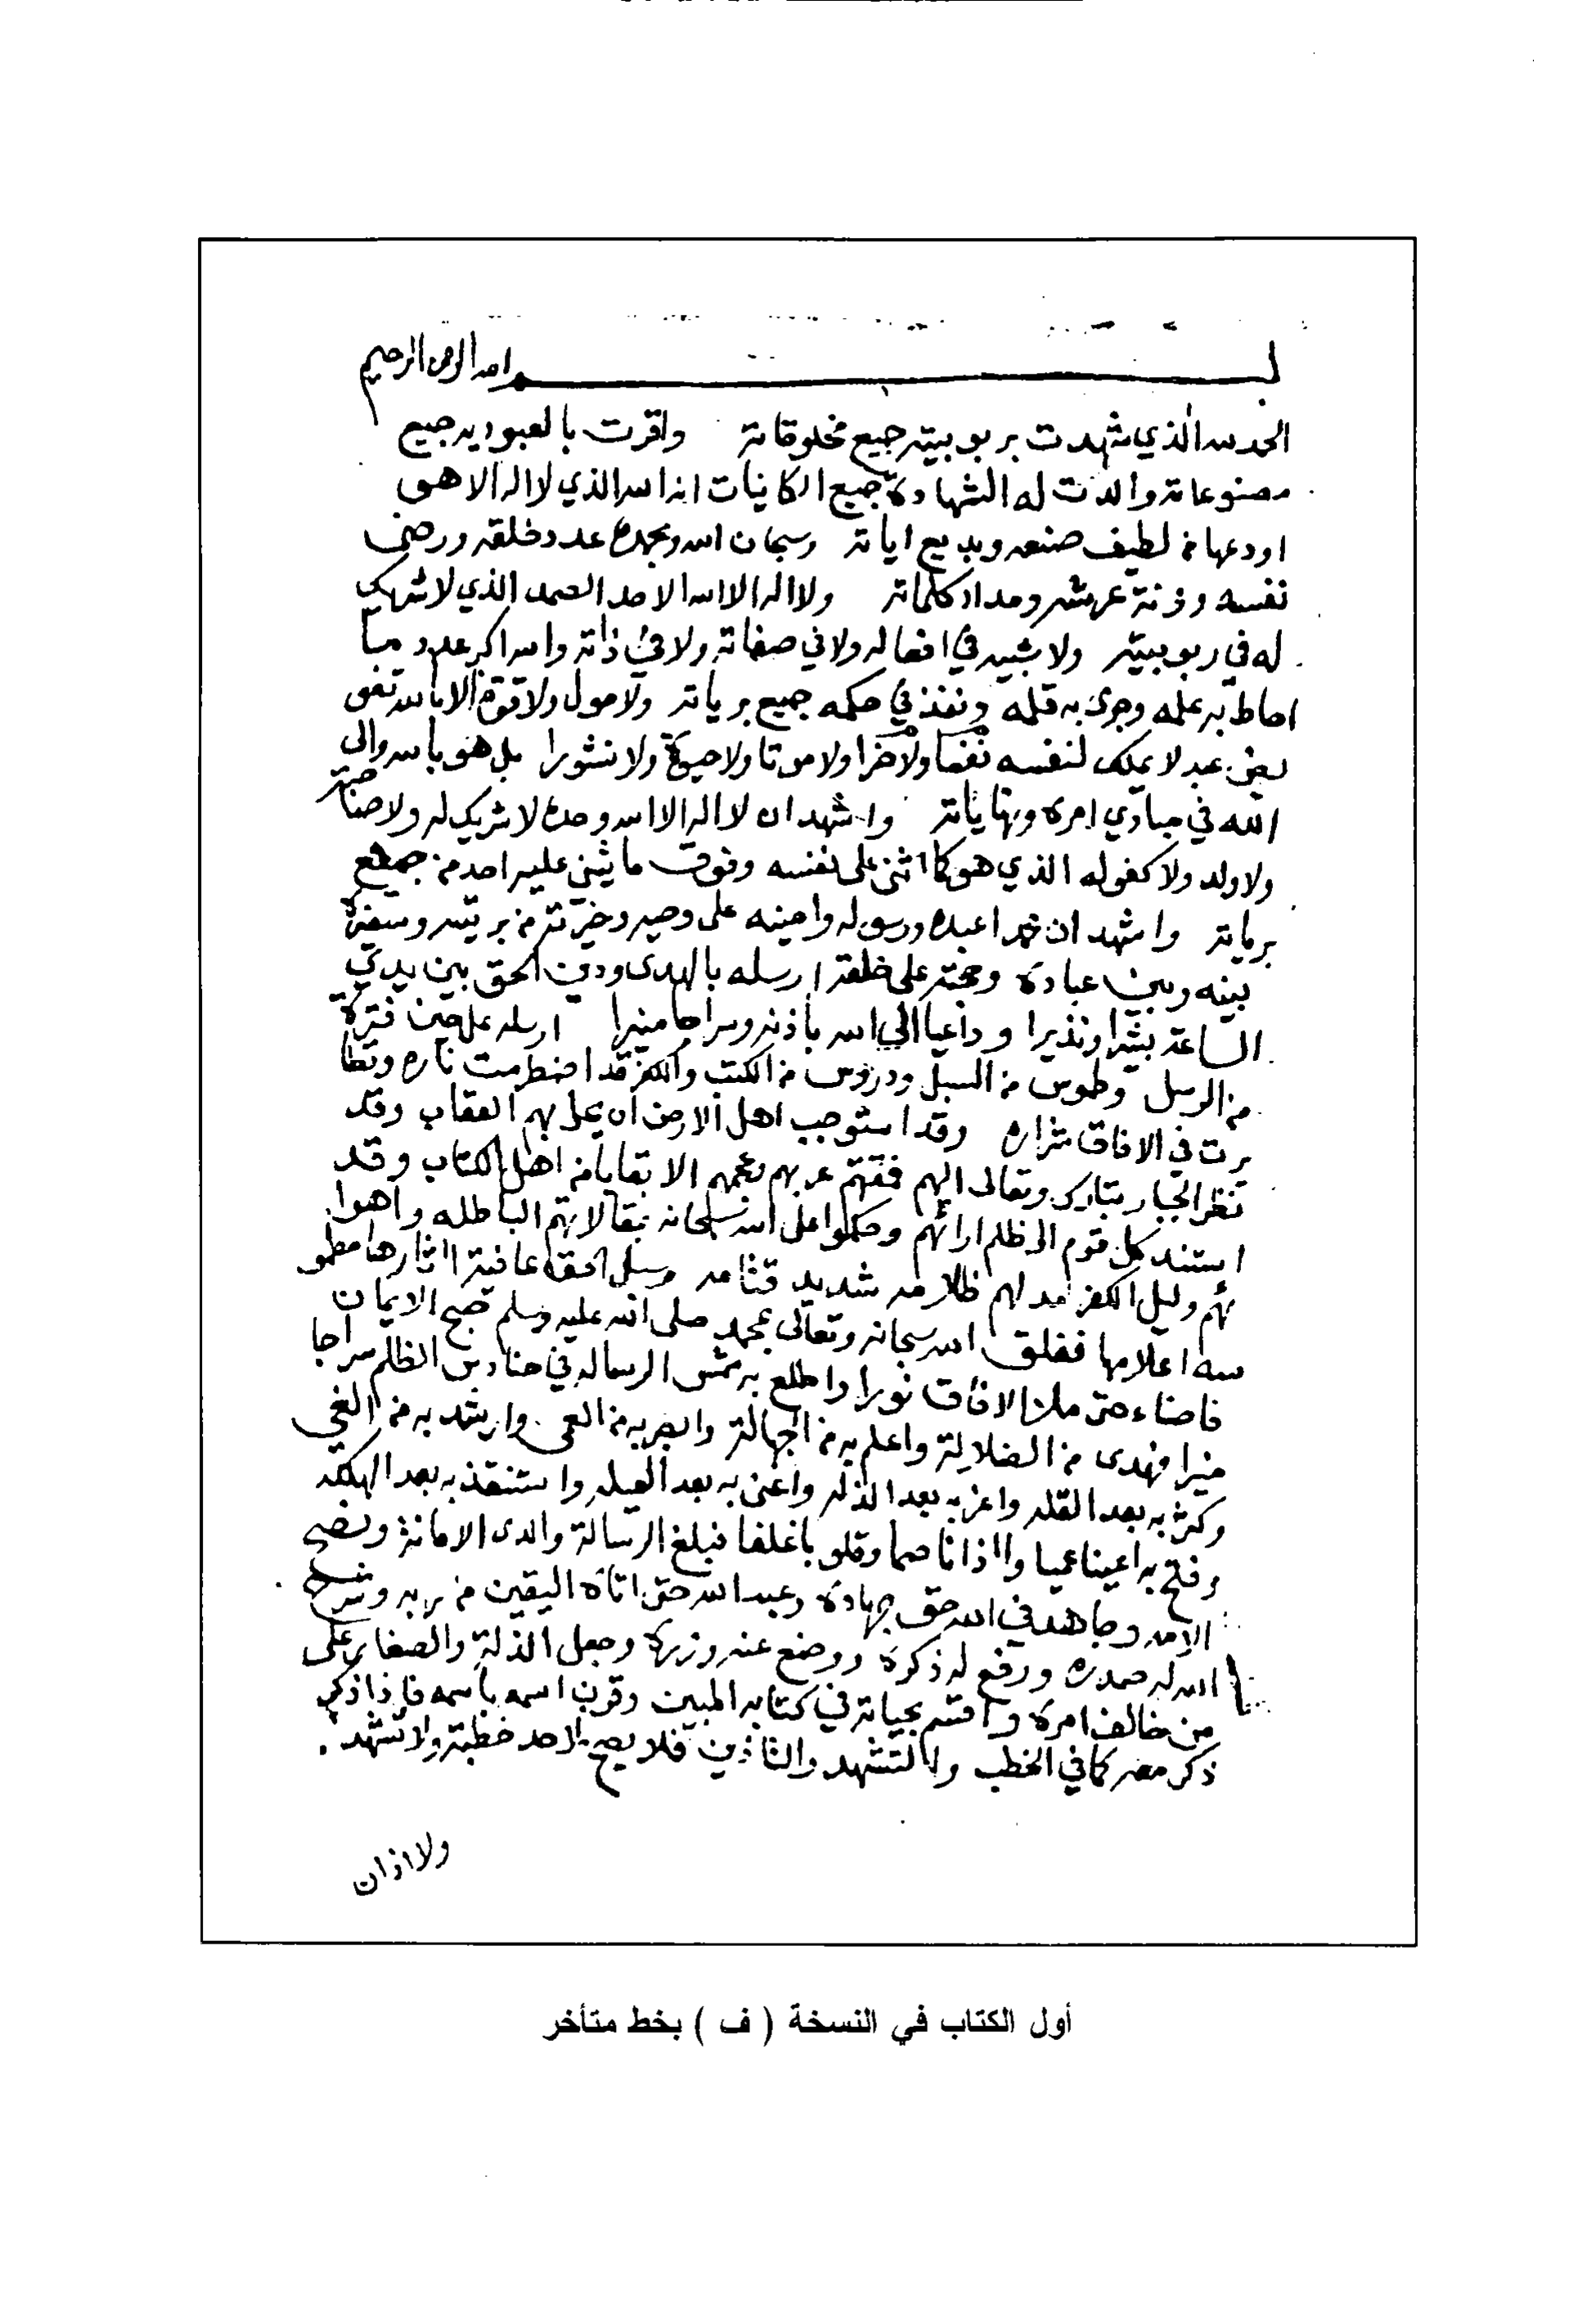 بسم الله الرحمن الرحيم
الحمد لله الذي شهدت بربوبيته جميع مخلوقاته واقرت بالعبوديه جميع
مصنوعاته وادت له الشهادة جميع الكاينات انه الله الذي لا اله الا هو
اودعها من لطيف صنعه وبديع اياته وسبحان الله وبحمده عدد خلقه ورضى
نفسه وزنة عرشه ومداد كلماته ولا اله الا الله الاحد الصمد الذي لا شريك
له في ربوبيته ولا شبيه في افعاله ولا في صفاته ولا في ذاته والله اكبر عدد ما
احاط به علمه وجرى به قلمه ونفذ في حكمه جميع برياته ولا حول ولا قوة الا بالله تفو
يض عبد لا يملك لنفسه نفعا ولا ضرا ولا موتا ولا حيوة ولا نشورا بل هو بالله والى
الله في مبادي امره ونهاياته واشهد ان لا اله الا الله وحده لا شريك له ولا صاحبة
ولا ولد ولا كفو له الذي هو كما اثنى على نفسه وفوق ما يثني عليه احد من جميع
برياته واشهد ان محمدا عبده ورسوله وامينه على وحيه وخيرته من بريته وسفيره
بينه وبين عباده وحجته على خلقه ارسله بالهدى ودين الحق بين يدي
الساعة بشيرا ونذيرا وداعيا الي الله باذنه وسراجا منيرا ارسله على حين فترة
من الرسل وطموس من السبل ودروس من الكتب والكفر قد اضطرمت ناره وتطا
يرت في الافاق شراره وقد استوجب اهل الارض ان يحل بهم العقاب وقد
نظر الجبار تبارك وتعالى اليهم فمقتهم عربهم وعجمهم الا بقايا من اهل الكتاب وقد
استند كل قوم الى ظلم ارائهم وحكموا على الله سبحانه بمقالاتهم الباطله واهوا
ئهم وليل الكفر مدلهم ظلامه شديد قتامه وسبل الحق عافية اثارها مطمو
سه اعلامها ففلق الله سبحانه وتعالى بمحمد صلى الله عليه وسلم صبح الايمان
فاضاء حتى ملا الافاق نورا واطلع به شمس الرساله في حنادس الظلم سراجا
منيرا فهدى من الضلالة واعلم به من الجهالة وابصر به من العمى وارشد به من الغي
وكثر به بعد القله واعز به بعد الذله واغنى به بعد العيله واستنقذ به بعد الهلكه
وفتح به اعينا عميا واذانا صما وقلوبا غلفا فبلغ الرسالة وادى الامانة ونصح
الامه وجاهد في الله حق جهاده وعبد الله حتى اتاه اليقين من ربه وشرح
الله له صدره ورفع له ذكره ووضع عنه وزره وجعل الذلة والصغار على
من خالف امره واقسم بحياته في كتابه المبين وقرن اسمه باسمه فاذا ذكر
ذكر معه كما في الخطب والتشهد والتاذين فلا يصح لاحد خطبة ولا تشهد
ولا اذان
أول الكتاب في النسخة ( ف ) بخط متأخر